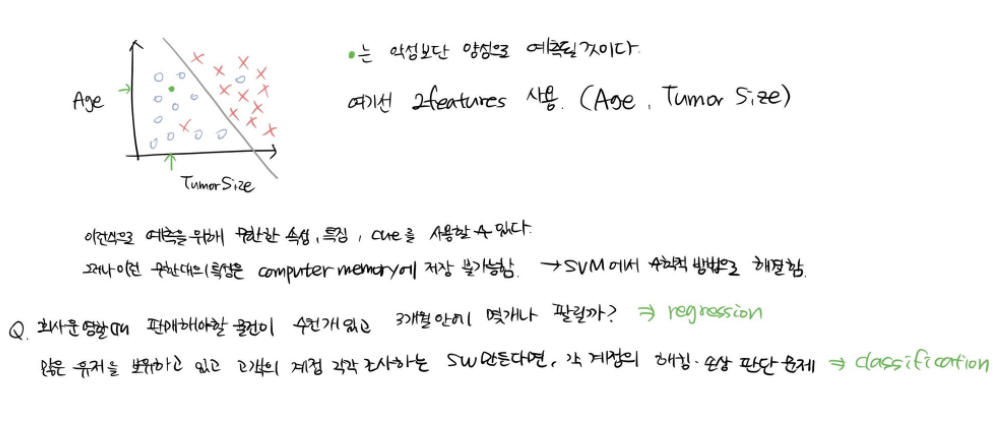 Age
Tumor Size
•는 악성보단 양성으로 예측될것이다.
여기선 2features 사용. (Age, Tumor Size)
이런식으로 예측을 위해 무한한 속성, 특징, cue를 사용할 수 있다.
그러나 이런 무한대의 특성은 computer memory에 저장 불가능함. → SVM에서 수학적 방법으로 해결함.
Q. 회사운영할때 판매해야할 물건이 수천개 있고 3개월안에 몇개나 팔릴까? ⇒ regression
많은 유저를 보유하고 있고 고객의 계정 각각 조사하는 SW만든다면, 각 계정의 해킹·손상 판단 문제 ⇒ classification